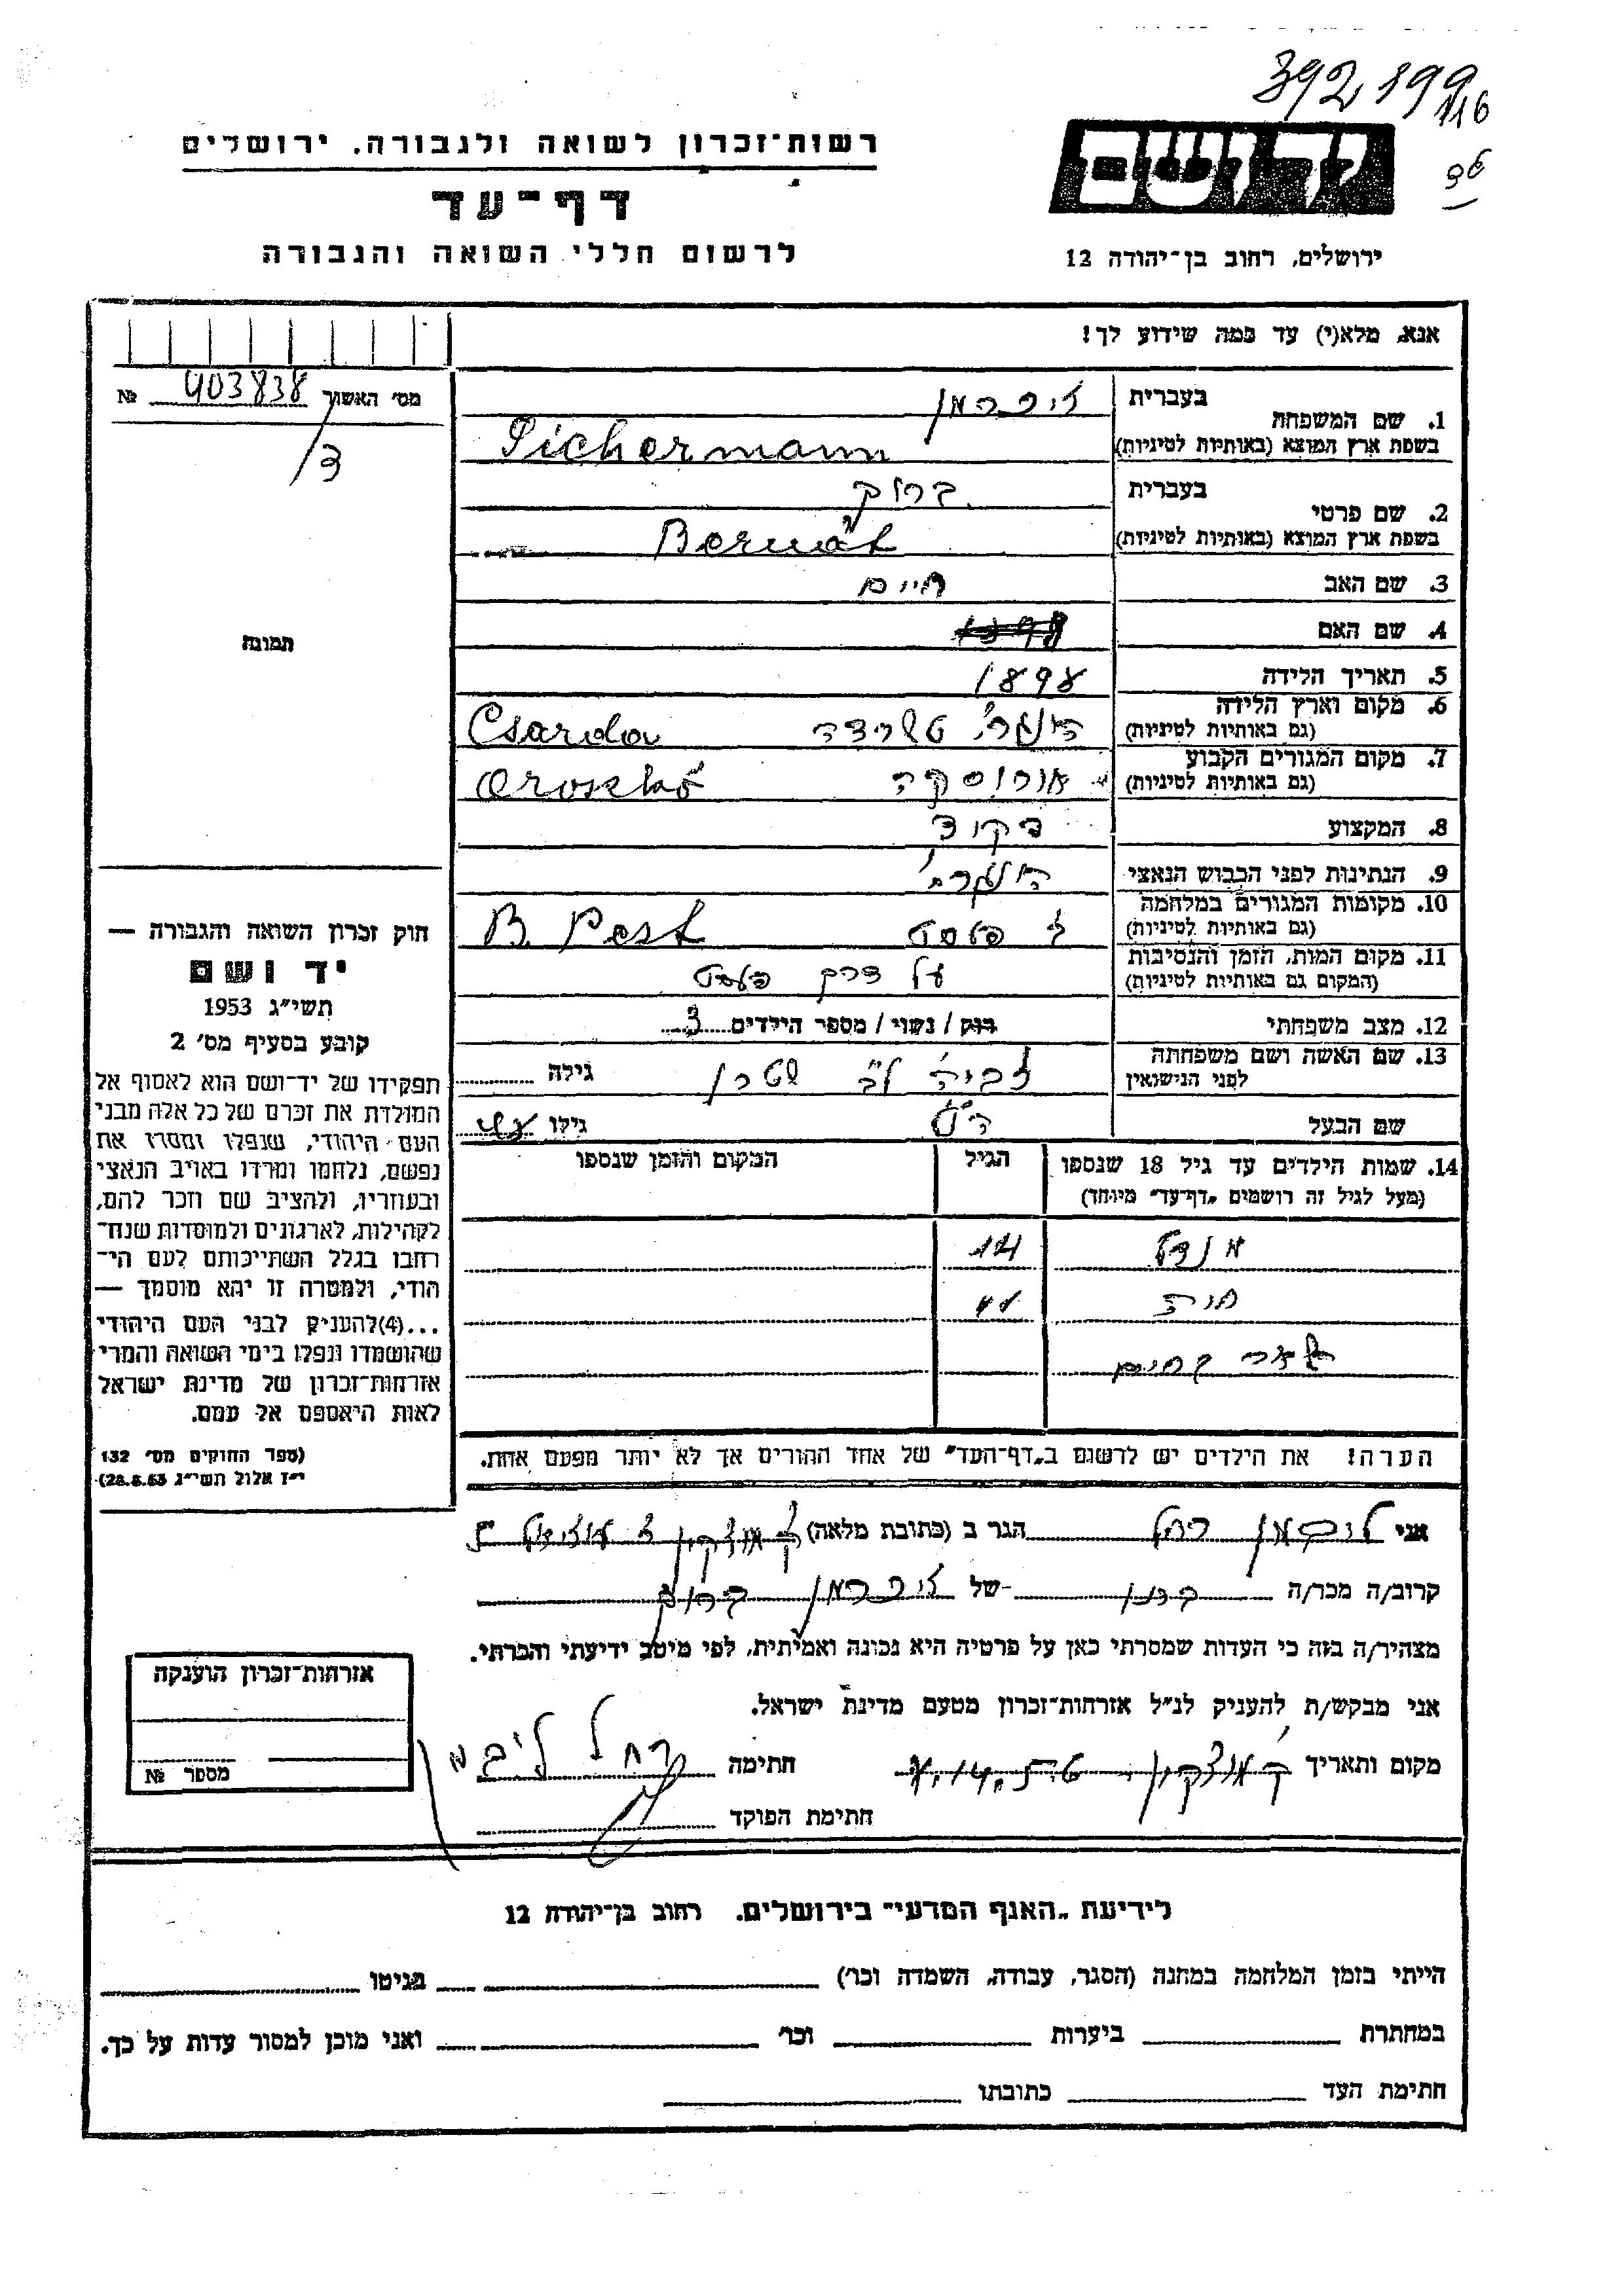 392199
116
רשות־זכרון לשואה ולגבורה. ירושלים
דף־עד
לרשום חללי השואה והגבורה
יד ושם
ירושלים, רחוב בן־יהודה 12
אנא, מלא(י) עד כמה שידוע לך!
מס' האשור 403838 №
/3
בעברית זיכרמן
1. שם המשפחה
בשפת ארץ המוצא (באותיות לטיניות) Sichermann
בעברית ברוך
2. שם פרטי
בשפת ארץ המוצא (באותיות לטיניות) Bernát
3. שם האב חיים
4. שם האם
תמונה
5. תאריך הלידה 1898
6. מקום וארץ הלידה
(גם באותיות לטיניות) Csaroda
7. מקום המגורים הקבוע
(גם באותיות לטיניות) Oroszkő
8. המקצוע פקיד
9. הנתינות לפני הכבוש הנאצי
10. מקומות המגורים במלחמה
(גם באותיות לטיניות) ב פשסט B. Pest
11. מקום המות, הזמן והנסיבות
(המקום גם באותיות לטיניות) על דרך
12. מצב משפחתי רוק / נשוי / מספר הילדים 3
13. שם האשה ושם משפחתה
לפני הנישואין צביה לב שטרן גילה
שם הבעל גילו
14. שמות הילדים עד גיל 18 שנספו הגיל המקום והזמן שנספו
(מעל לגיל זה רושמים „דף־עד" מיוחד)
14
11
הערה! את הילדים יש לרשום ב„דף־העד" של אחד ההורים אך לא יותר מפעם אחת.
חוק זכרון השואה והגבורה —
יד ושם
תשי"ג 1953
קובע בסעיף מס' 2
תפקידו של יד־ושם הוא לאסוף אל
המולדת את זכרם של כל אלה מבני
העם היהודי, שנפלו ומסרו את
נפשם, נלחמו ומרדו באויב הנאצי
ובעוזריו, ולהציב שם וזכר להם,
לקהילות, לארגונים ולמוסדות שנח־
רחבו בגלל השתייכותם לעם הי־
הודי, ולמטרה זו יהא מוסמך —
...(4)להעניק לבני העם היהודי
שהושמדו ונפלו בימי השואה והמרי
אזרחות־זכרון של מדינת ישראל
לאות היאספם אל עמם.
(ספר החוקים מס' 132
י"ז אלול תשי"ג 28.8.53)
אני ליבמן רחל הגר ב (כתובת מלאה) ק מוצקין
קרוב/ה מכר/ה של זיכרמן ברוך
מצהיר/ה בזה כי העדות שמסרתי כאן על פרטיה היא נכונה ואמיתית, לפי מיטב ידיעתי והכרתי.
אני מבקש/ת להעניק לנ"ל אזרחות־זכרון מטעם מדינת ישראל.
מקום ותאריך ק מוצקין חתימה רחל ליבמ
חתימת הפוקד
אזרחות־זכרון הוענקה
מספר №
לידיעת „האגף המדעי" בירושלים. רחוב בן־יהודה 12
הייתי בזמן המלחמה במחנה (הסגר, עבודה, השמדה וכו') בגיטו
במחתרת ביערות וכו' ואני מוכן למסור עדות על כך.
חתימת העד כתובתו